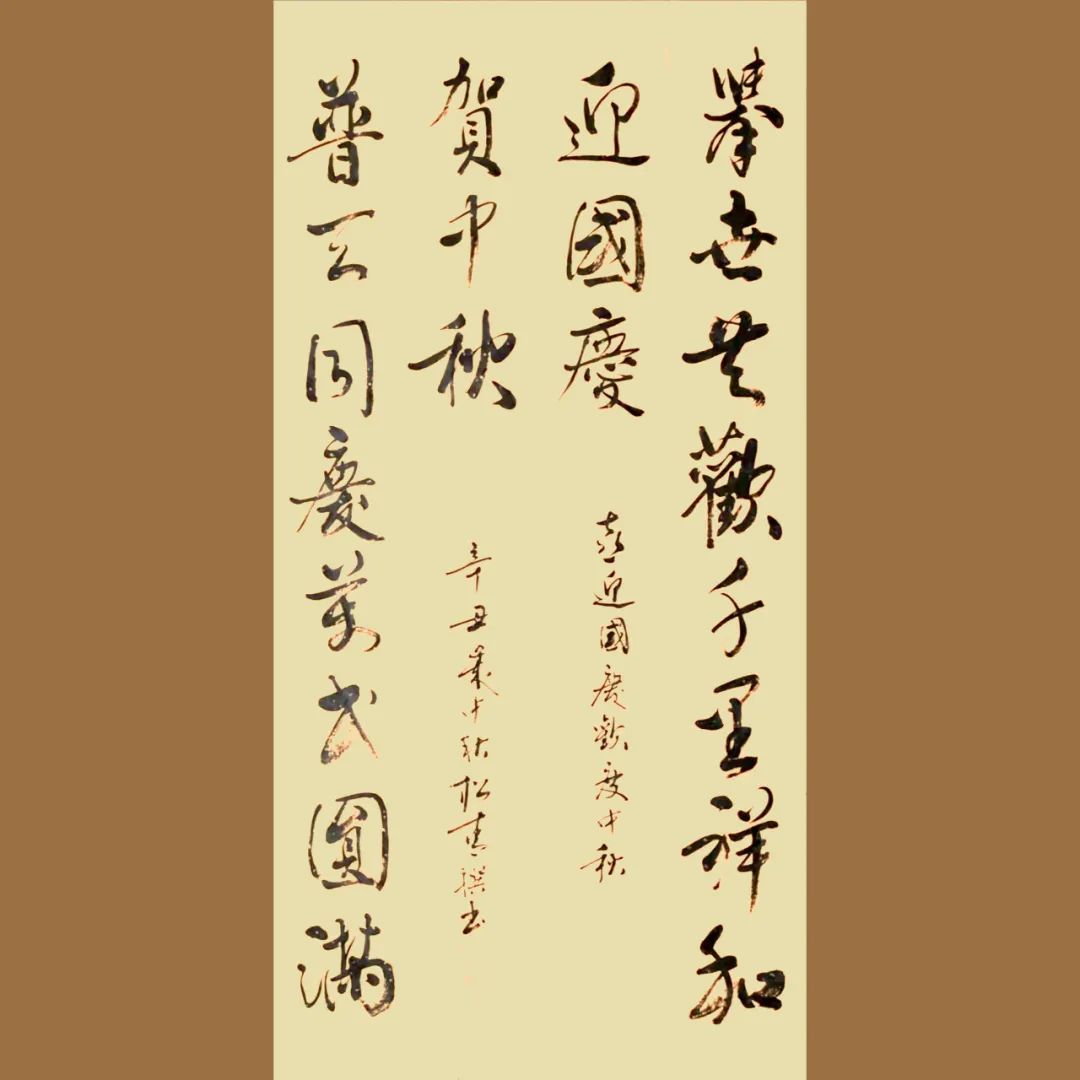 舉世共歡千里祥和
迎國慶
喜迎國慶歡度中秋
賀中秋
辛丑歲中秋松青撰书
普天同慶萬圓滿